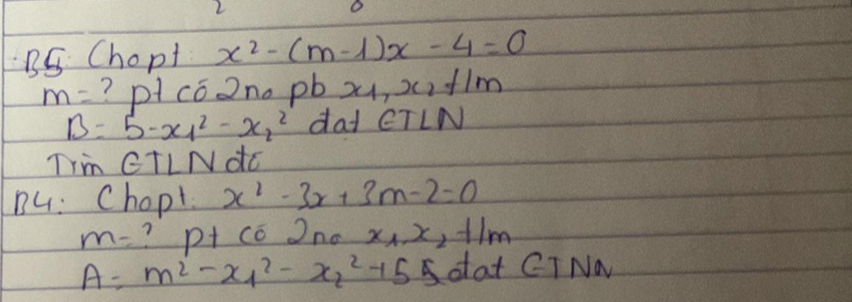 B5: Cho pt: x² - (m-1)x - 4 = 0
m = ? pt có 2 no pb x₁, x₂ t/m
B = 5 - x₁² - x₂² đạt GTLN
Tìm GTLN đó
B4: Cho pt: x² - 3x + 3m - 2 = 0
m = ? pt có 2 no x₁, x₂ t/m
A = m² - x₁² - x₂² + 5 đạt GTNN